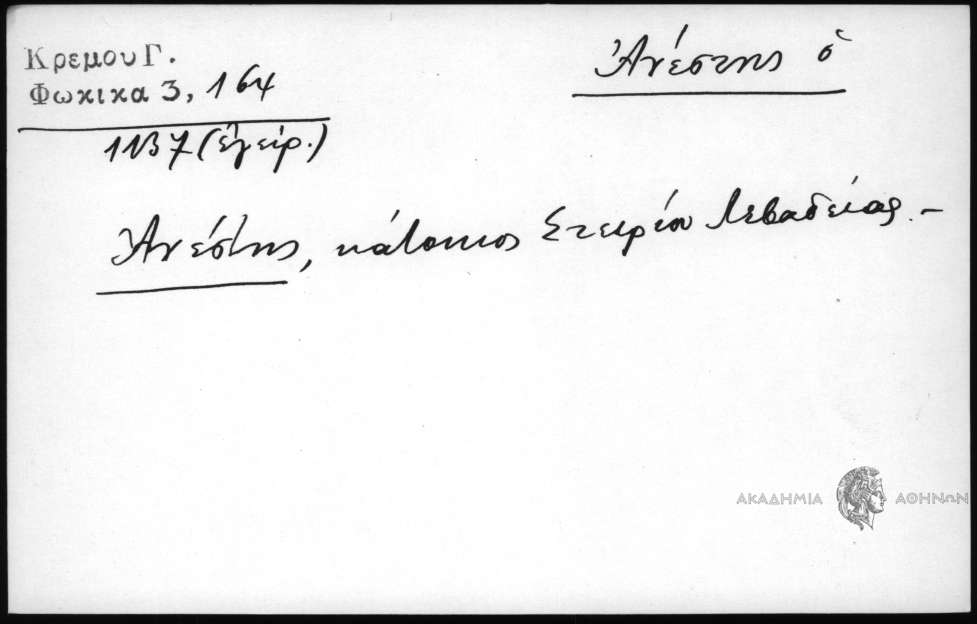 Κρεμου Γ.
Φωκικα 3, 164
1137 (ἐγειρ.)
Ἀνέστης ὁ
Ἀνέστης, κάτοικος Στειρίου Λεβαδείας.–
ΑΚΑΔΗΜΙΑ ΑΘΗΝΩΝ